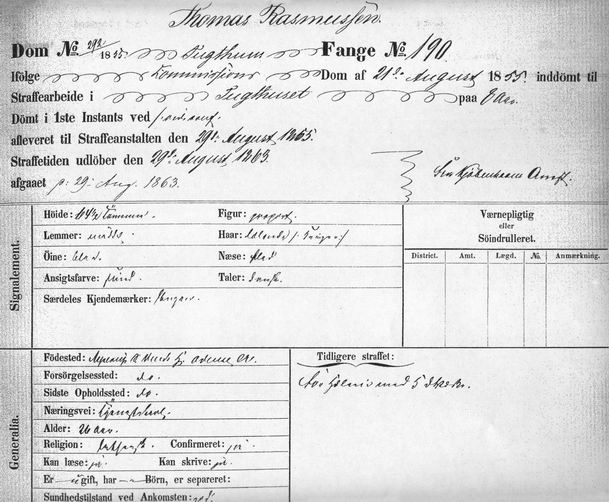 Thomas Rasmussen.
Dom № 292/1855 Tugthuus Fange № 190.
Ifölge Kommissions Dom af 21de August 1855. inddömt til
Straffearbeide i Tugthuset paa 8 Aar.
Dömt i 1ste Instants ved
afleveret til Straffeanstalten den 29de August 1855.
Straffetiden udlöber den 29de August 1863.
afgaaet p: 29. Aug. 1863. Kjöbenhavns Arrest.
Signalement.
Höide: 64½ Tommer. Figur: propert.
Lemmer: Haar: blondt
Öine: blaa. Næse: flad
Ansigtsfarve: sund. Taler: dansk.
Særdeles Kjendemærker: Ingen.
Værnepligtig
eller
Söindrulleret.
District. Amt. Lægd. №. Anmærkning.
Generalia.
Födested: Odense
Forsörgelsessted: do.
Sidste Opholdssted: do.
Næringsvei: Tjenestekarl.
Alder: 26 Aar.
Religion: luthersk. Confirmeret: ja.
Kan læse: ja. Kan skrive: ja.
Er ugift, har Börn, er separeret:
Sundhedstilstand ved Ankomsten: god.
Tidligere straffet:
med 5